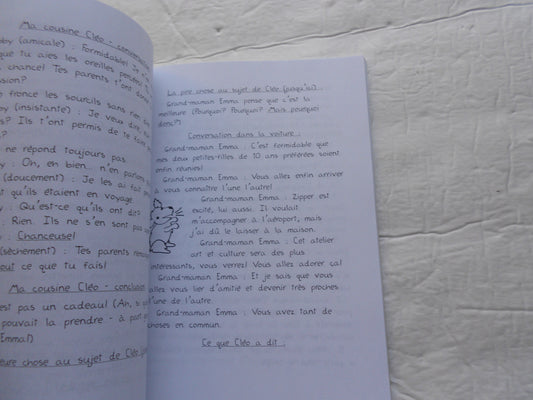 Ma cousine Cléo - conversation
by (amicale) : Formidable!
que tu aies les oreilles percées!
chance! Tes parents t'ont
sion?
fronce les sourcils sans rien
by (insistante) : Je veux dire
s? Ils t'ont permis de te faire
?
ne répond toujours pas.
y : Oh, eh bien... n'en parlons
(doucement) : Je les ai fait
t qu'ils étaient en voyage.
y : Qu'est-ce qu'ils ont dit?
: Rien. Ils ne s'en sont pas
: Chanceuse!
(sèchement) : Tes parents
out ce que tu fais!
Ma cousine Cléo - conclusion
est pas un cadeau! (Ah, si
pouvait la prendre - à part
Emma!)
eure chose au sujet de Cléo
La pire chose au sujet de Cléo (jusqu'ici)...
Grand-maman Emma pense que c'est la
meilleure (Pourquoi? Pourquoi? Mais pourquoi
donc?)
Conversation dans la voiture...
Grand-maman Emma : C'est formidable que
mes deux petites-filles de 10 ans préférées soient
enfin réunies!
Grand-maman Emma : Vous allez enfin arriver
à vous connaître l'une l'autre!
Grand-maman Emma : Zipper est
excité, lui aussi. Il voulait
m'accompagner à l'aéroport, mais
j'ai dû le laisser à la maison.
Grand-maman Emma : Cet atelier
art et culture sera des plus
intéressants, vous verrez! Vous allez adorer ça!
Grand-maman Emma : Et je sais que vous
allez vous lier d'amitié et devenir très proches
l'une de l'autre.
Grand-maman Emma : Vous avez tant de
choses en commun.
Ce que Cléo a dit...